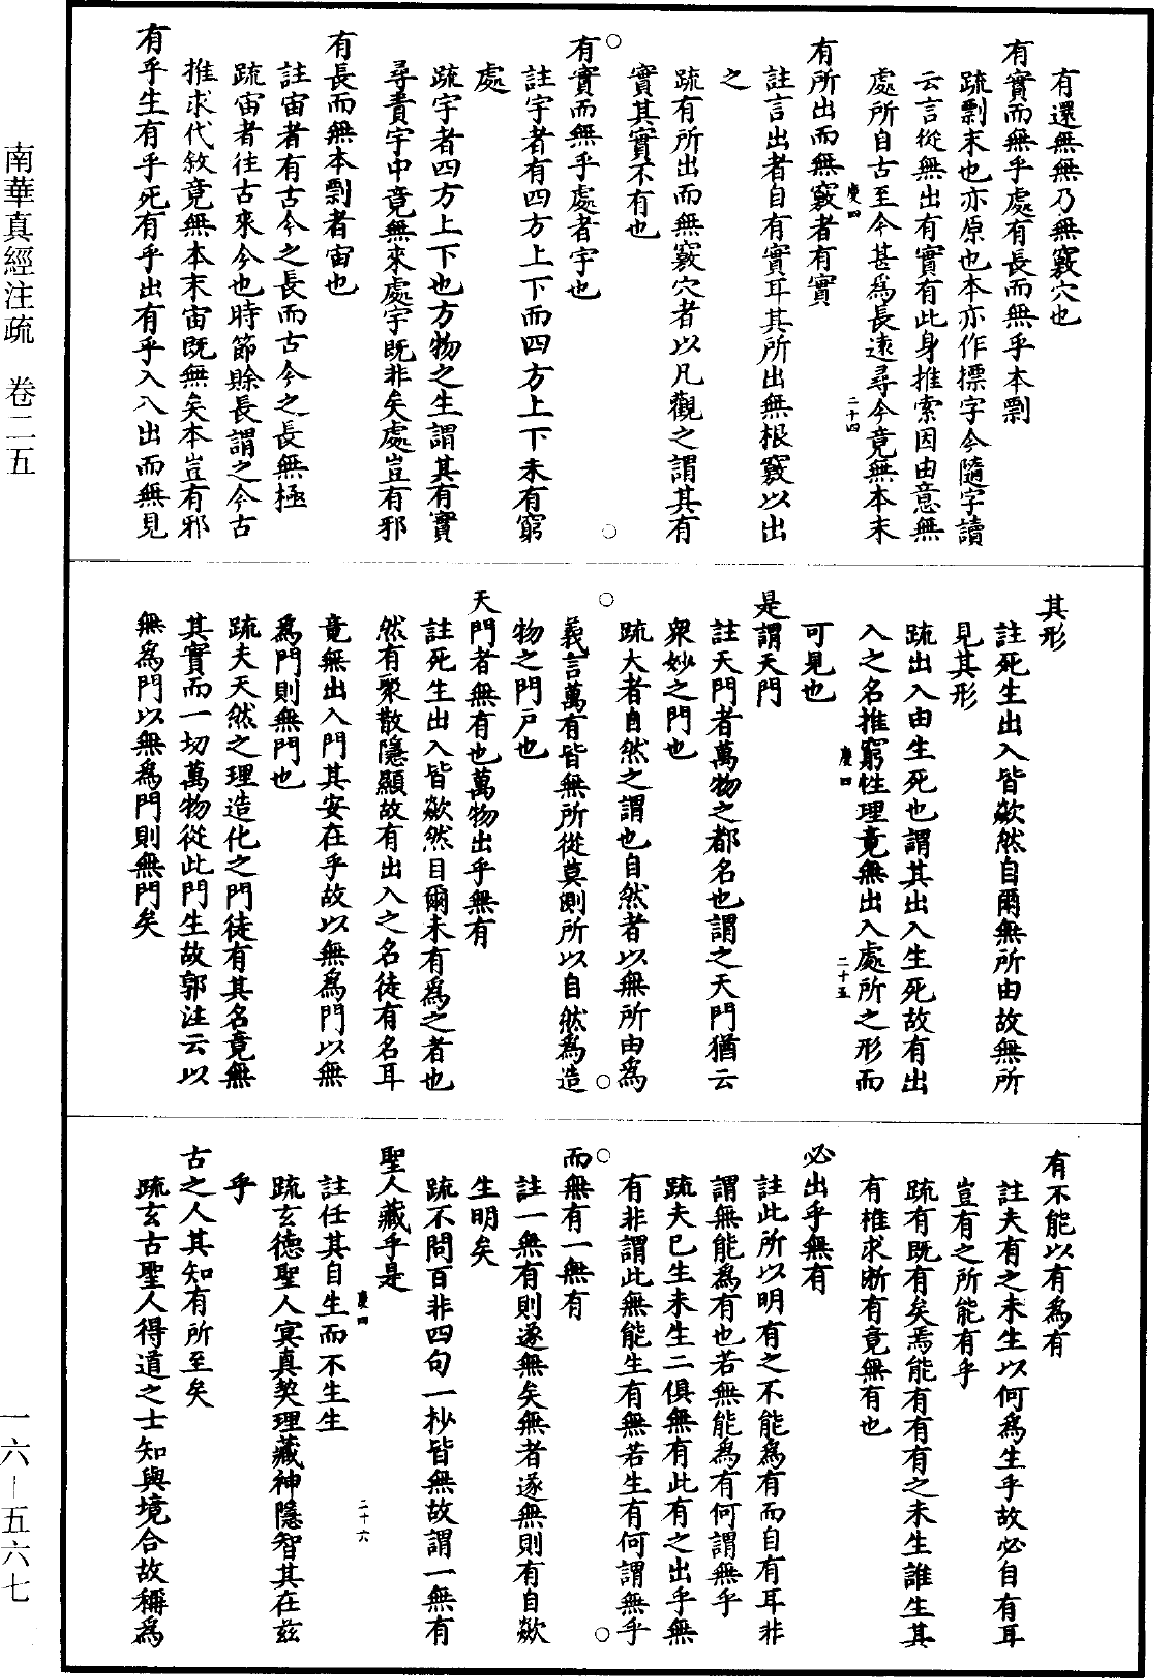 有還無無乃無竅穴也
有實而無乎處有長而無乎本剽
疏剽末也亦原也本亦作摽字今隨字讀
云言從無出有實有此身推索因由意無
處所自古至今甚為長遠尋今竟無本末
慶四 二十四
有所出而無竅者有實
註言出者自有實耳其所出無根竅以出
之
疏有所出而無竅穴者以凡觀之謂其有
實其實不有也
有實而無乎處者宇也
註宇者有四方上下而四方上下未有窮
處
疏宇者四方上下也方物之生謂其有實
尋責宇中竟無來處宇既非矣處豈有邪
有長而無本剽者宙也
註宙者有古今之長而古今之長無極
疏宙者往古來今也時節賒長謂之今古
推求代敘竟無本末宙既無矣本豈有邪
有乎生有乎死有乎出有乎入入出而無見
其形
註死生出入皆欻然自爾無所由故無所
見其形
疏出入由生死也謂其出入生死故有出
入之名推窮性理竟無出入處所之形而
可見也
慶四 二十五
是謂天門
註天門者萬物之都名也謂之天門猶云
衆妙之門也
疏大者自然之謂也自然者以無所由為
義言萬有皆無所從莫測所以自然為造
物之門戶也
天門者無有也萬物出乎無有
註死生出入皆欻然自爾未有為之者也
然有聚散隱顯故有出入之名徒有名耳
竟無出入門其安在乎故以無為門以無
為門則無門也
疏夫天然之理造化之門徒有其名竟無
其實而一切萬物從此門生故郭注云以
無為門以無為門則無門矣
有不能以有為有
註夫有之未生以何為生乎故必自有耳
豈有之所能有乎
疏有既有矣焉能有有有之未生誰生其
有推求斯有竟無有也
必出乎無有
註此所以明有之不能為有而自有耳非
謂無能為有也若無能為有何謂無乎
疏夫已生未生二俱無有此有之出乎無
有非謂此無能生有無若生有何謂無乎
而無有一無有
註一無有則遂無矣無者遂無則有自欻
生明矣
疏不問百非四句一杪皆無故謂一無有
聖人藏乎是
慶四 二十六
註任其自生而不生生
疏玄德聖人冥真契理藏神隱智其在茲
乎
古之人其知有所至矣
疏玄古聖人得道之士知與境合故稱為
南華真經注疏 卷二五
一六—五六七